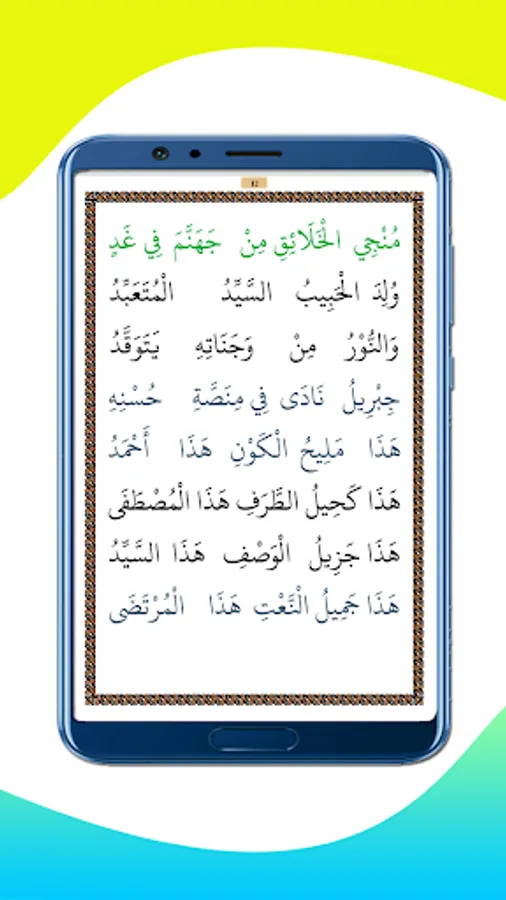 12
مُنْجِي الْخَلَائِقِ مِنْ جَهَنَّمَ فِي غَدٍ
وُلِدَ الْحَبِيبُ السَّيِّدُ الْمُتَعَبِّدُ
وَالنُّوْرُ مِنْ وَجَنَاتِهِ يَتَوَقَّدُ
جِبْرِيلُ نَادَى فِي مِنَصَّةِ حُسْنِهِ
هَذَا مَلِيحُ الْكَوْنِ هَذَا أَحْمَدُ
هَذَا كَحِيلُ الطَّرَفِ هَذَا الْمُصْطَفَى
هَذَا جَزِيلُ الْوَصْفِ هَذَا السَّيِّدُ
هَذَا جَمِيلُ النَّعْتِ هَذَا الْمُرْتَضَى